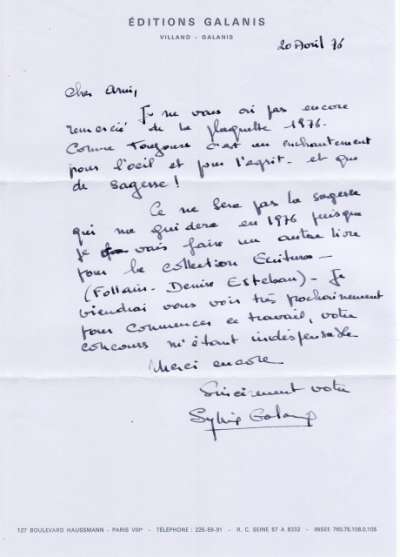 ÉDITIONS GALANIS
VILLAND - GALANIS
20 Avril 76
Cher Ami,
Je ne vous ai pas encore
remercié de la plaquette 1976.
Comme toujours c'est un enchantement
pour l'oeil et pour l'esprit - et que
de sagesse !
Ce ne sera pas la sagesse
qui me guidera en 1976 puisque
je vais faire un autre livre
pour la collection Écritures -
(Follain - Denise Esteban) - Je
viendrai vous voir très prochainement
pour commencer ce travail, votre
concours m'étant indispensable
Merci encore
Sincèrement votre
Sylvie Galanis
127 BOULEVARD HAUSSMANN - PARIS VIIIᵉ - TÉLÉPHONE : 225-59-31 - R. C. SEINE 57 A 8332 - INSEE